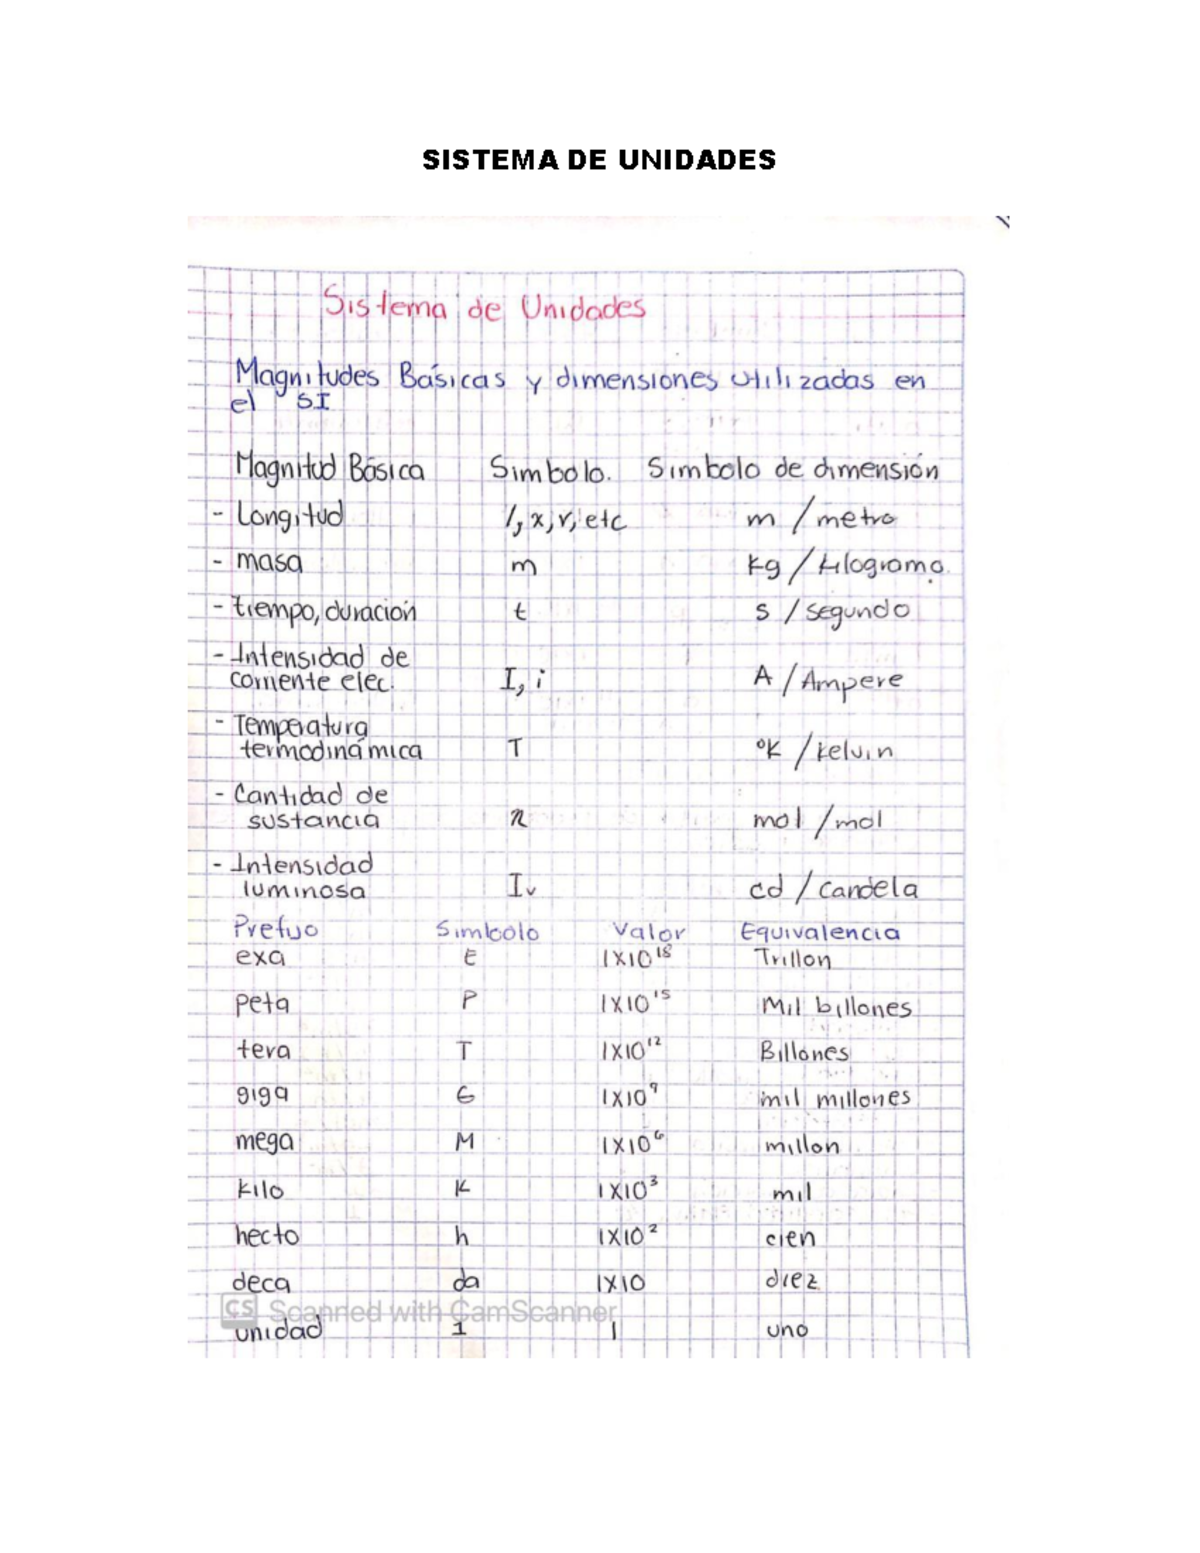 SISTEMA DE UNIDADES
Sistema de Unidades
Magnitudes Básicas y dimensiones utilizadas en
el SI
Magnitud Básica Simbolo. Simbolo de dimensión
- Longitud l, x, r, etc m / metro
- masa m kg / kilogramo.
- tiempo, duración t s / segundo
- Intensidad de
corriente elec. I, i A / Ampere
- Temperatura
termodinámica T °K / kelvin
- Cantidad de
sustancia n mol / mol
- Intensidad
luminosa Iv cd / candela
Prefijo Simbolo Valor Equivalencia
exa E 1X10¹⁸ Trillon
peta P 1X10¹⁵ Mil billones
tera T 1X10¹² Billones
giga G 1X10⁹ mil millones
mega M 1X10⁶ millon
kilo K 1X10³ mil
hecto h 1X10² cien
deca da 1X10 diez
CS Scanned with CamScanner
unidad 1 1 uno